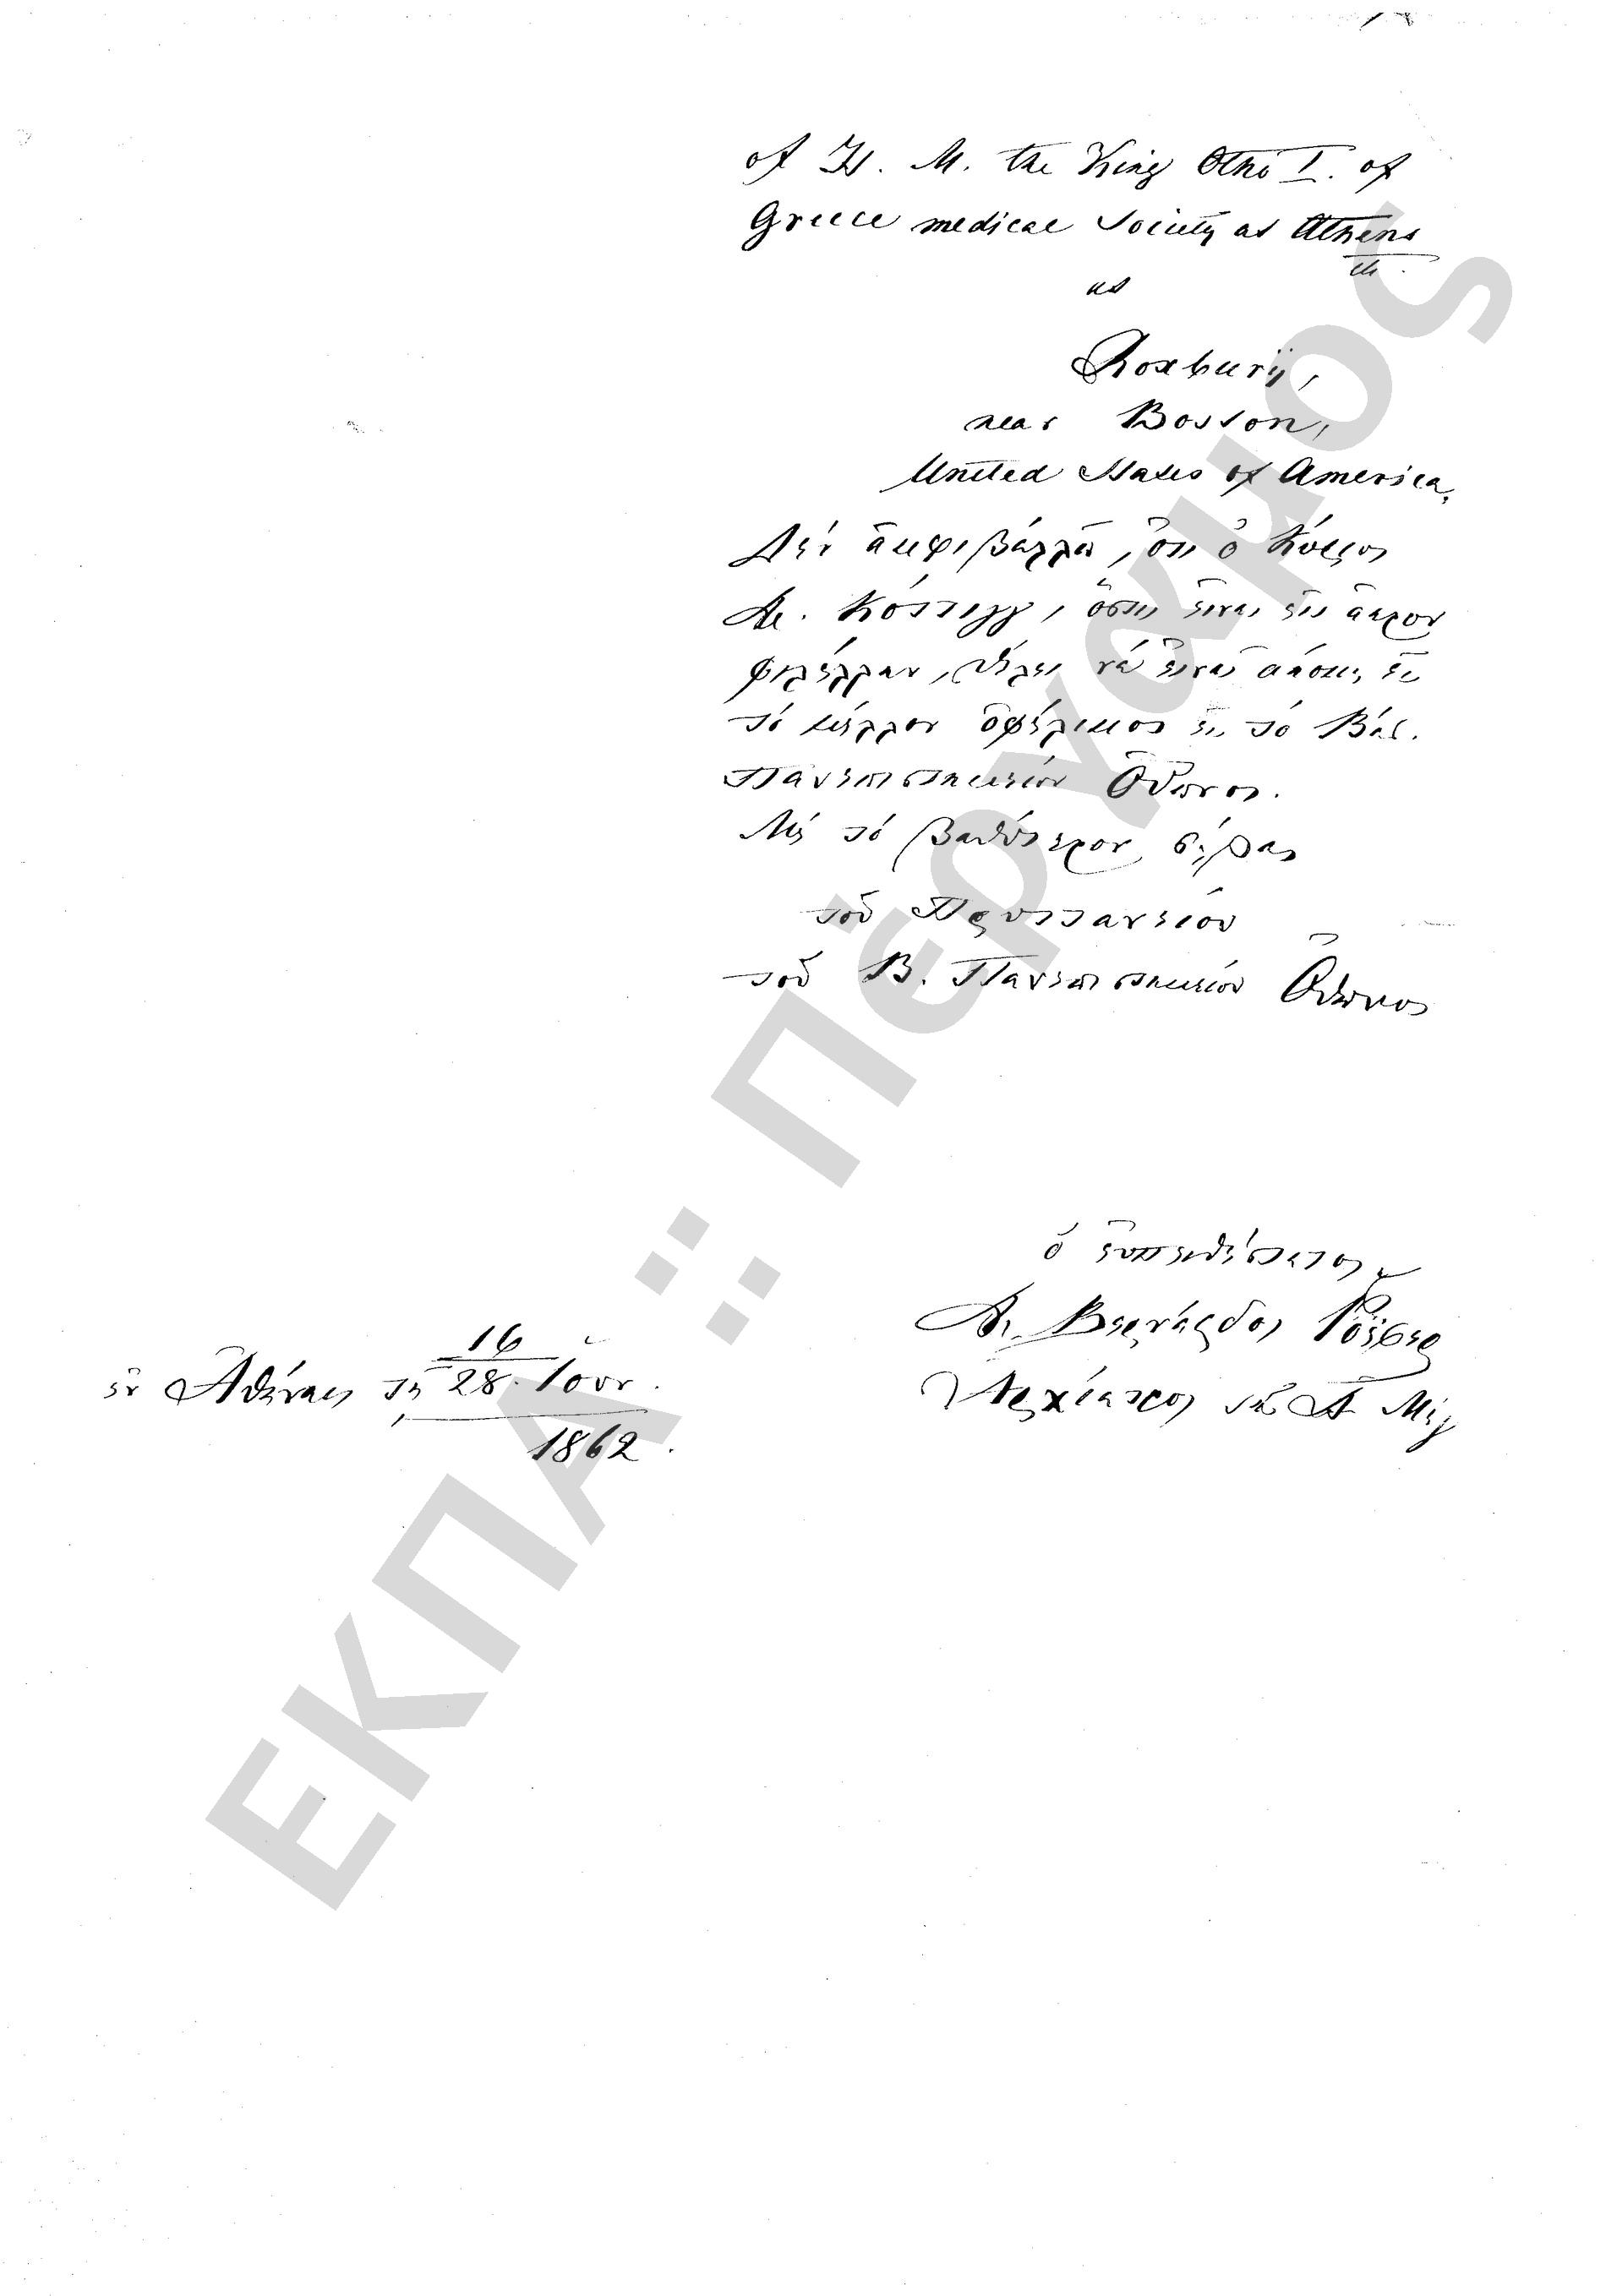 of H. M. the King Otho I. of
Greece medical Society at Athens
etc.
at
Roxbury,
near Boston,
United States of America.
Δὲν ἀμφιβάλλω, ὅτι ὁ Κύριος
Δρ. Κόττιγγ, ὅστις εἶναι εἰς ἄκρον
φιλέλλην, θέλει νὰ εἶναι εἰς
τὸ μέλλον ὀφέλιμος εἰς τὸ Βασ.
Πανεπιστημεῖον Ὄθωνος.
Μὲ τὸ βαθύτερον σέβας
τοῦ Πρυττανείου
τοῦ Β. Πανεπιστημείου Ὄθωνος
ὁ εὐπειθέστατος
Δρ. Βερνάρδος Ρόεσερ
Ἀρχίατρος τῆς Α. Μεγ
16
ἐν Ἀθήναις τῇ 28. Ἰουν.
1862.
ΕΚΠΑ :: Πέργαμος